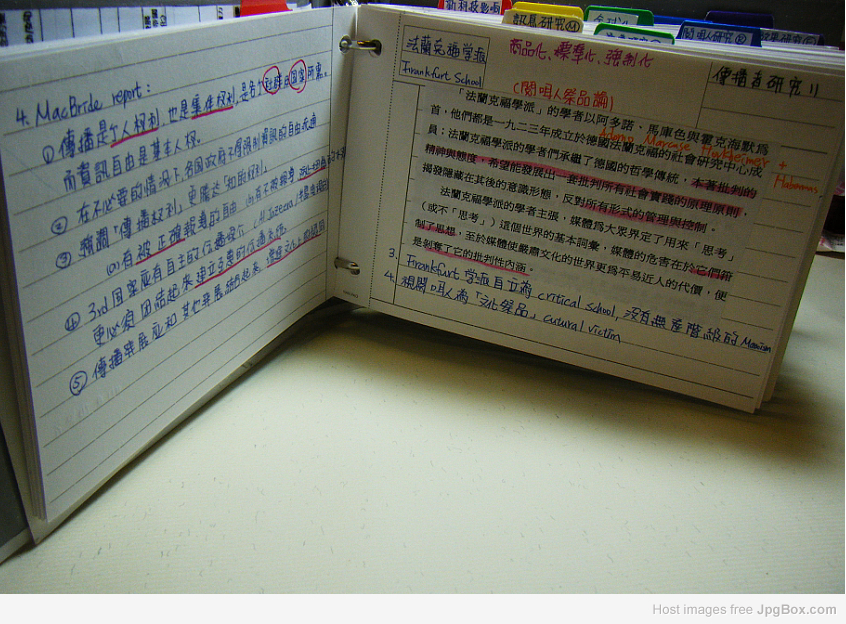 新科技影响
訊息研究
閱聽人研究
4. MacBride report:
① 傳播是个人权利, 也是集体权利, 是各个社群与国家所需。
而資訊自由是基本人权。
② 在不必要的情況下, 各国政府不得限制資訊的自由流通
③ 強調「傳播权利」
有被正確報導的自由
④ 3rd 国家应有自主的传播
更必須团結起來建立互惠的传播系統。
⑤ 傳播發展应和其他發展結合起來
法蘭克福学派
Frankfurt School
商品化、標準化、強制化
傳播者研究 11
(閱听人祭品論)
「法蘭克福學派」的學者以阿多諾、馬庫色與霍克海默為
首,他們都是一九二三年成立於德國法蘭克福的社會研究中心成
Adorno Marcuse Horkheimer +
Habermas
員;法蘭克福學派的學者們承繼了德國的哲學傳統,本著批判的
精神與態度,希望能發展出一套批判所有社會實踐的原理原則,
揭發隱藏在其後的意識形態,反對所有形式的管理與控制。
法蘭克福學派的學者主張,媒體為大眾界定了用來「思考」
(或不「思考」)這個世界的基本詞彙,媒體的危害在於它們箝
制了思想,至於媒體使嚴肅文化的世界更為平易近人的代價,便
是剝奪了它的批判性內涵。
3. Frankfurt 学派自立為 critical school, 沒有無產階級的 Marxism
4. 視閱听人為「文化祭品」cutural victim
Host images free JpgBox.com